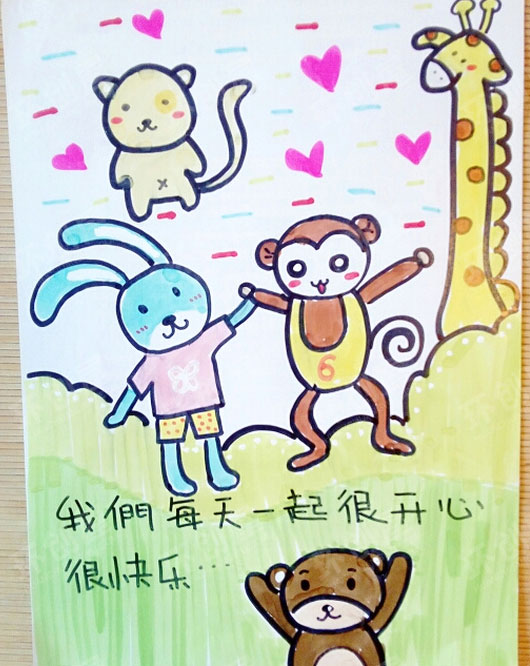 6
我們每天一起很开心
很快乐……